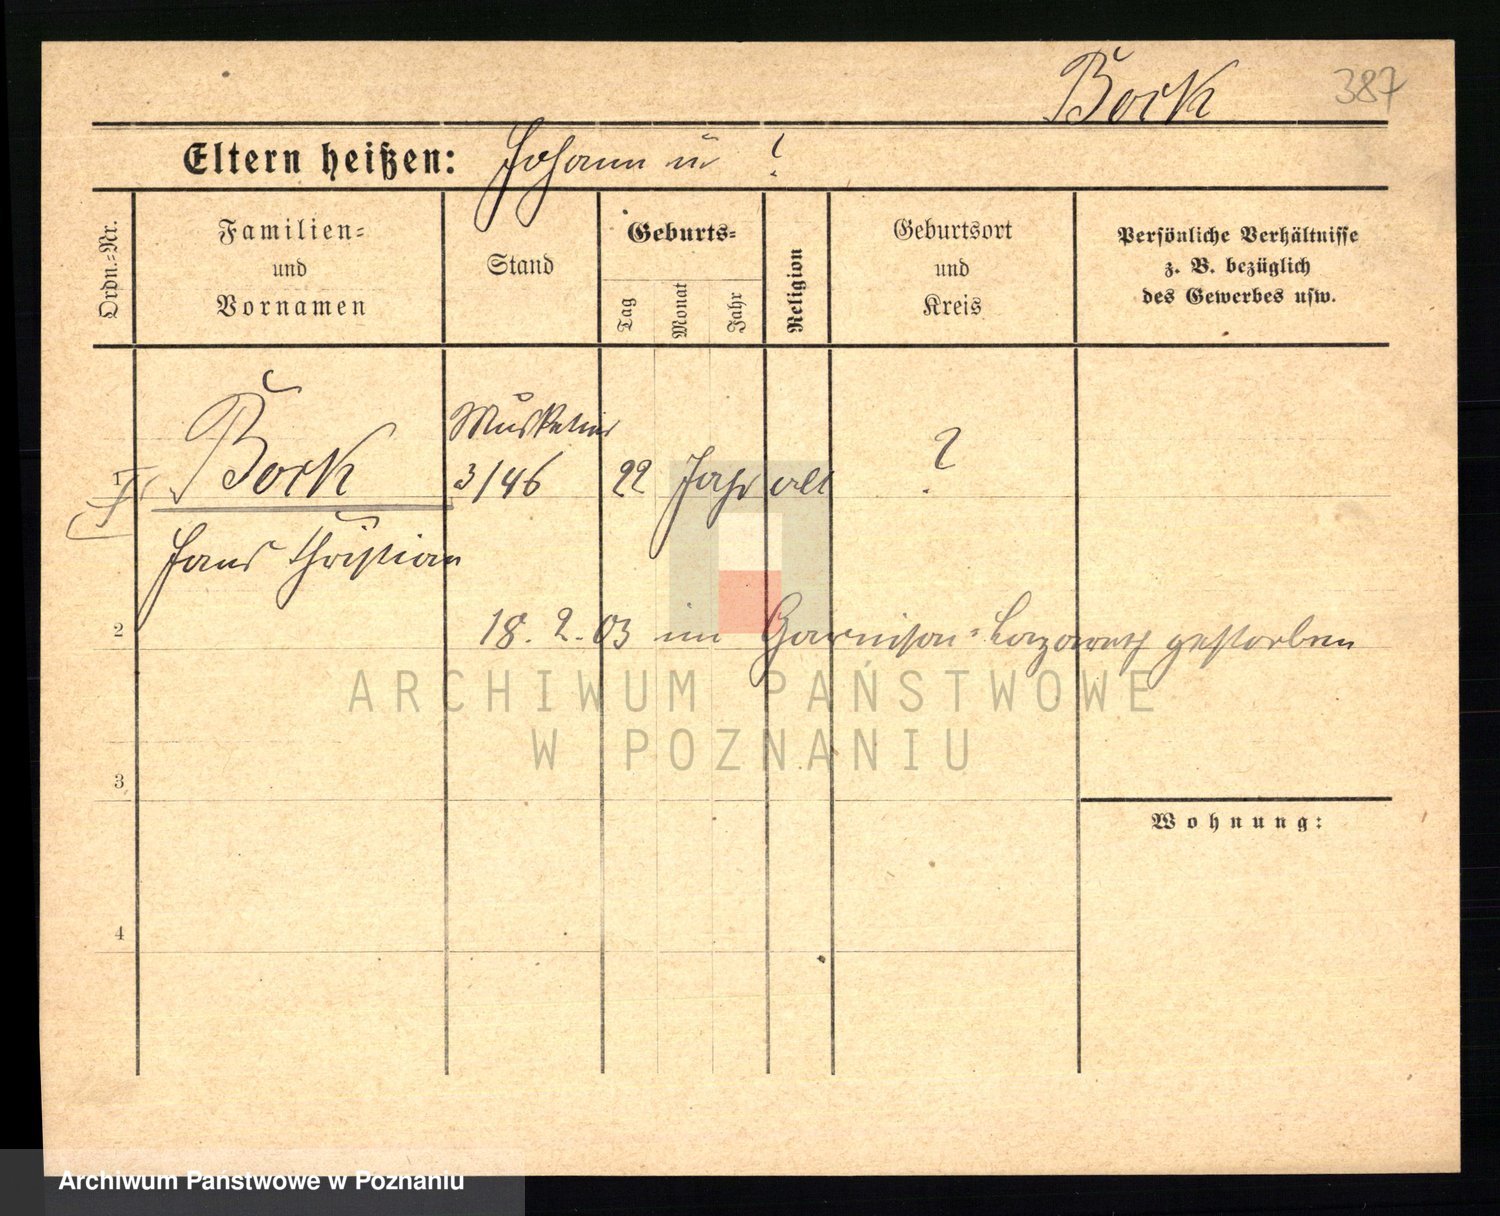 Bock 387
Eltern heißen: Johann u ?
Ordn.-Nr.
Familien-
und
Vornamen
Stand
Geburts-
Tag
Monat
Jahr
Religion
Geburtsort
und
Kreis
Persönliche Verhältnisse
z. B. bezüglich
des Gewerbes usw.
1
Bock
Musketier
3/46
22 Jahr alt
?
Hans Christian
2
18. 2. 03 im Garnison-Lazareth gestorben
ARCHIWUM PAŃSTWOWE
W POZNANIU
3
Wohnung:
4
Archiwum Państwowe w Poznaniu